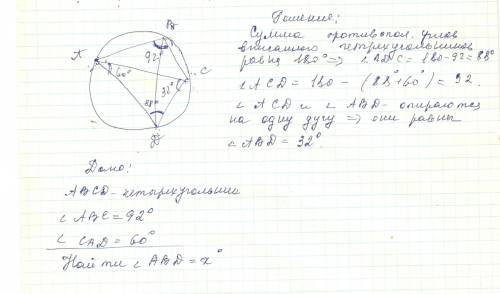 Решение:
Сумма противопол. углов
вписанного четырехугольника
равна 180° => ∠ADC = 180-92=88°
∠ACD = 180 - (88°+60°) = 32.
∠ACD и ∠ABD - опираются
на одну дугу => они равны
∠ABD = 32°.
A
B
92°
C
60°
32°
88°
D
Дано:
ABCD - четырехугольник
∠ABC = 92°
∠CAD = 60°
Найти ∠ABD = x°